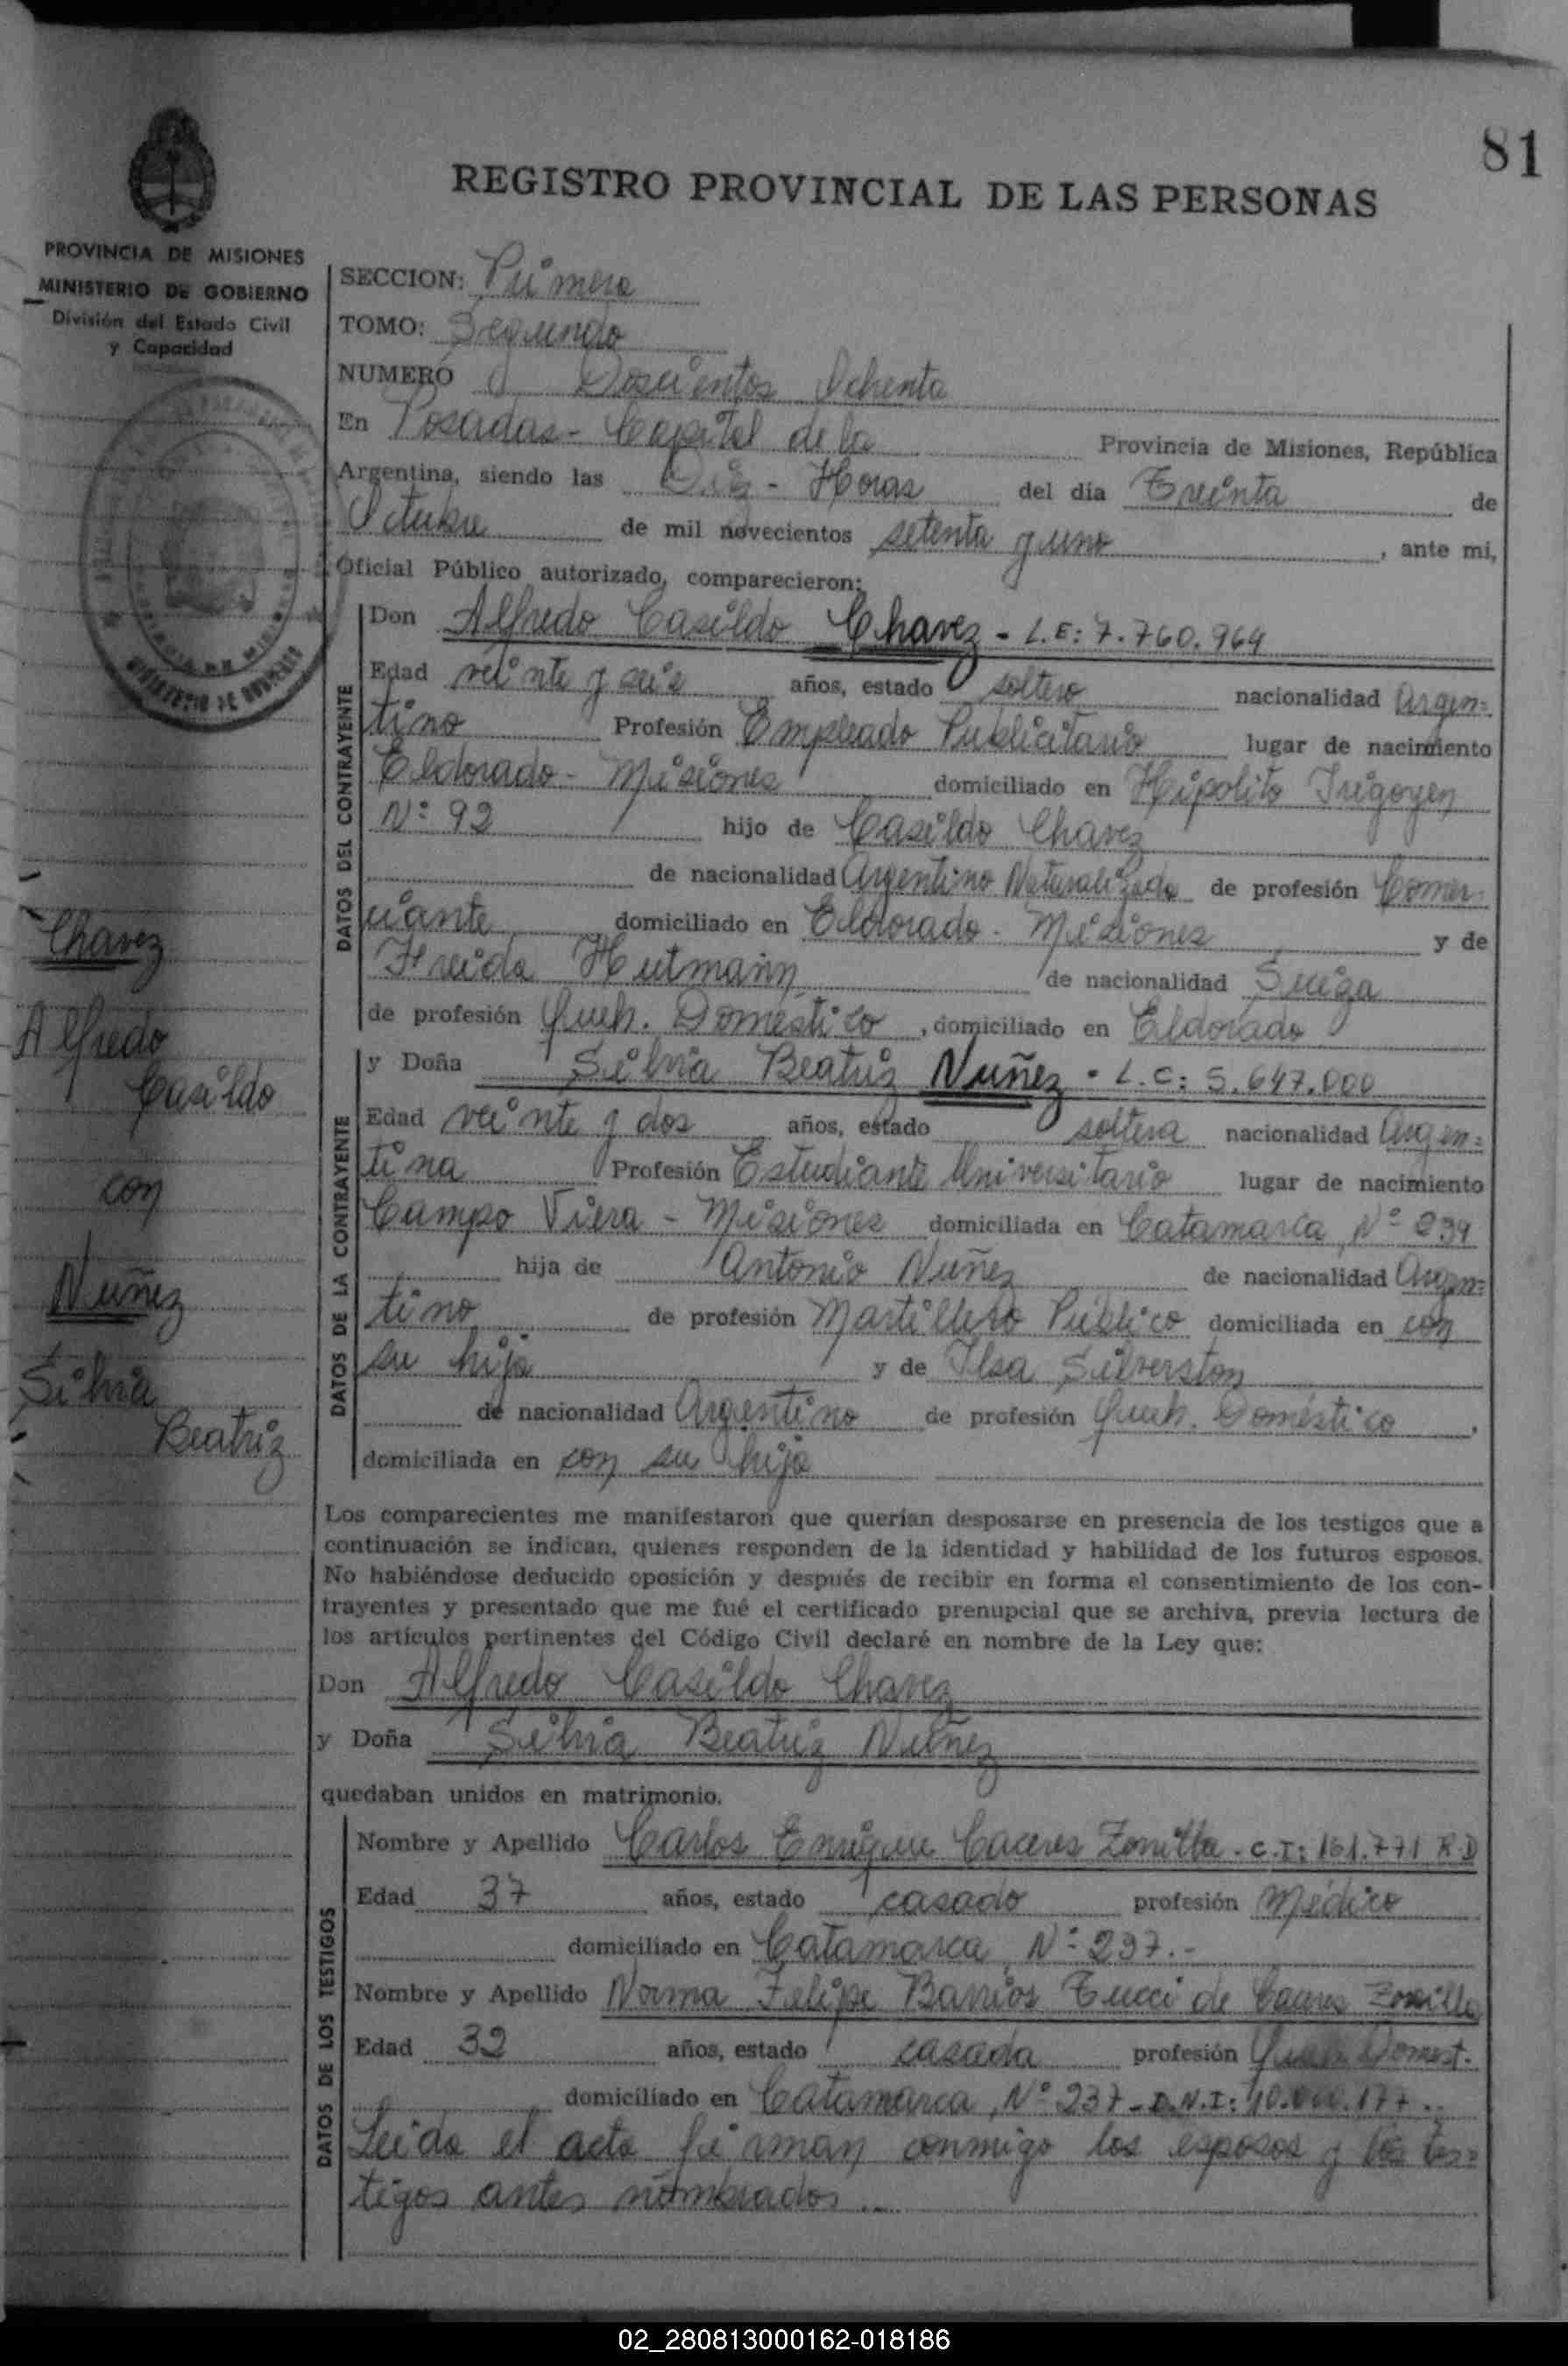 81
REGISTRO PROVINCIAL DE LAS PERSONAS
PROVINCIA DE MISIONES
MINISTERIO DE GOBIERNO
División del Estado Civil
y Capacidad
SECCION: Primera
TOMO: Segundo
NUMERO Doscientos Ochenta
En Posadas - Capital de la Provincia de Misiones, República
Argentina, siendo las Diez - Horas del día Treinta de
Octubre de mil novecientos setenta y uno, ante mi,
Oficial Público autorizado, comparecieron:
DATOS DEL CONTRAYENTE
Don Alfredo Casildo Chavez - L.E: 7.760.964
Edad veinte y seis años, estado soltero nacionalidad Argen=
tino Profesión Empleado Publicitario lugar de nacimiento
Eldorado - Misiones domiciliado en Hipolito Irigoyen
N: 92 hijo de Casildo Chavez
de nacionalidad Argentino Naturalizado de profesión Comer-
ciante domiciliado en Eldorado - Misiones y de
Freida Hutmann de nacionalidad Suiza
de profesión Queh. Domestico, domiciliado en Eldorado
DATOS DE LA CONTRAYENTE
y Doña Silvia Beatriz Nuñez - L.C: 5.647.000
Edad veinte y dos años, estado soltera nacionalidad Argen=
tina Profesión Estudiante Universitario lugar de nacimiento
Campo Viera - Misiones domiciliada en Catamarca, N° 239
hija de Antonio Nuñez de nacionalidad Argen=
tino de profesión Martillero Publico domiciliada en con
su hija y de Ilsa Silverston
de nacionalidad Argentino de profesión Queh. Doméstico,
domiciliada en con su hija
Los comparecientes me manifestaron que querían desposarse en presencia de los testigos que a
continuación se indican, quienes responden de la identidad y habilidad de los futuros esposos.
No habiéndose deducido oposición y después de recibir en forma el consentimiento de los con-
trayentes y presentado que me fué el certificado prenupcial que se archiva, previa lectura de
los artículos pertinentes del Código Civil declaré en nombre de la Ley que:
Don Alfredo Casildo Chavez
y Doña Silvia Beatriz Nuñez
quedaban unidos en matrimonio.
DATOS DE LOS TESTIGOS
Nombre y Apellido Carlos Enrique Caceres Zorrilla - C.I: 161.771 R.D
Edad 37 años, estado casado profesión Médico
domiciliado en Catamarca, N° 237.-
Nombre y Apellido Norma Felipe Barrios Tucci de Caceres Zorrilla
Edad 32 años, estado casada profesión Queh. Domest.
domiciliado en Catamarca, N° 237 - D.N.I:
Leida el acta firman conmigo los esposos y los tes=
tigos antes nombrados..
Chavez
Alfredo
Casildo
con
Nuñez
Silvia
Beatriz
02_280813000162-018186